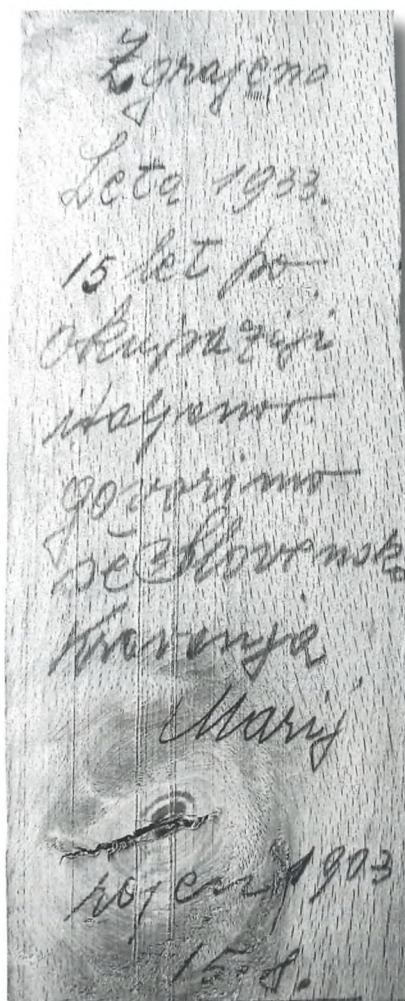 Zgrajeno
Leta 1933.
15 let po
Okupaziji
italjanov.
govorimo
še Slovensko
Kravanja
Marij
rojen 1903
15.8.